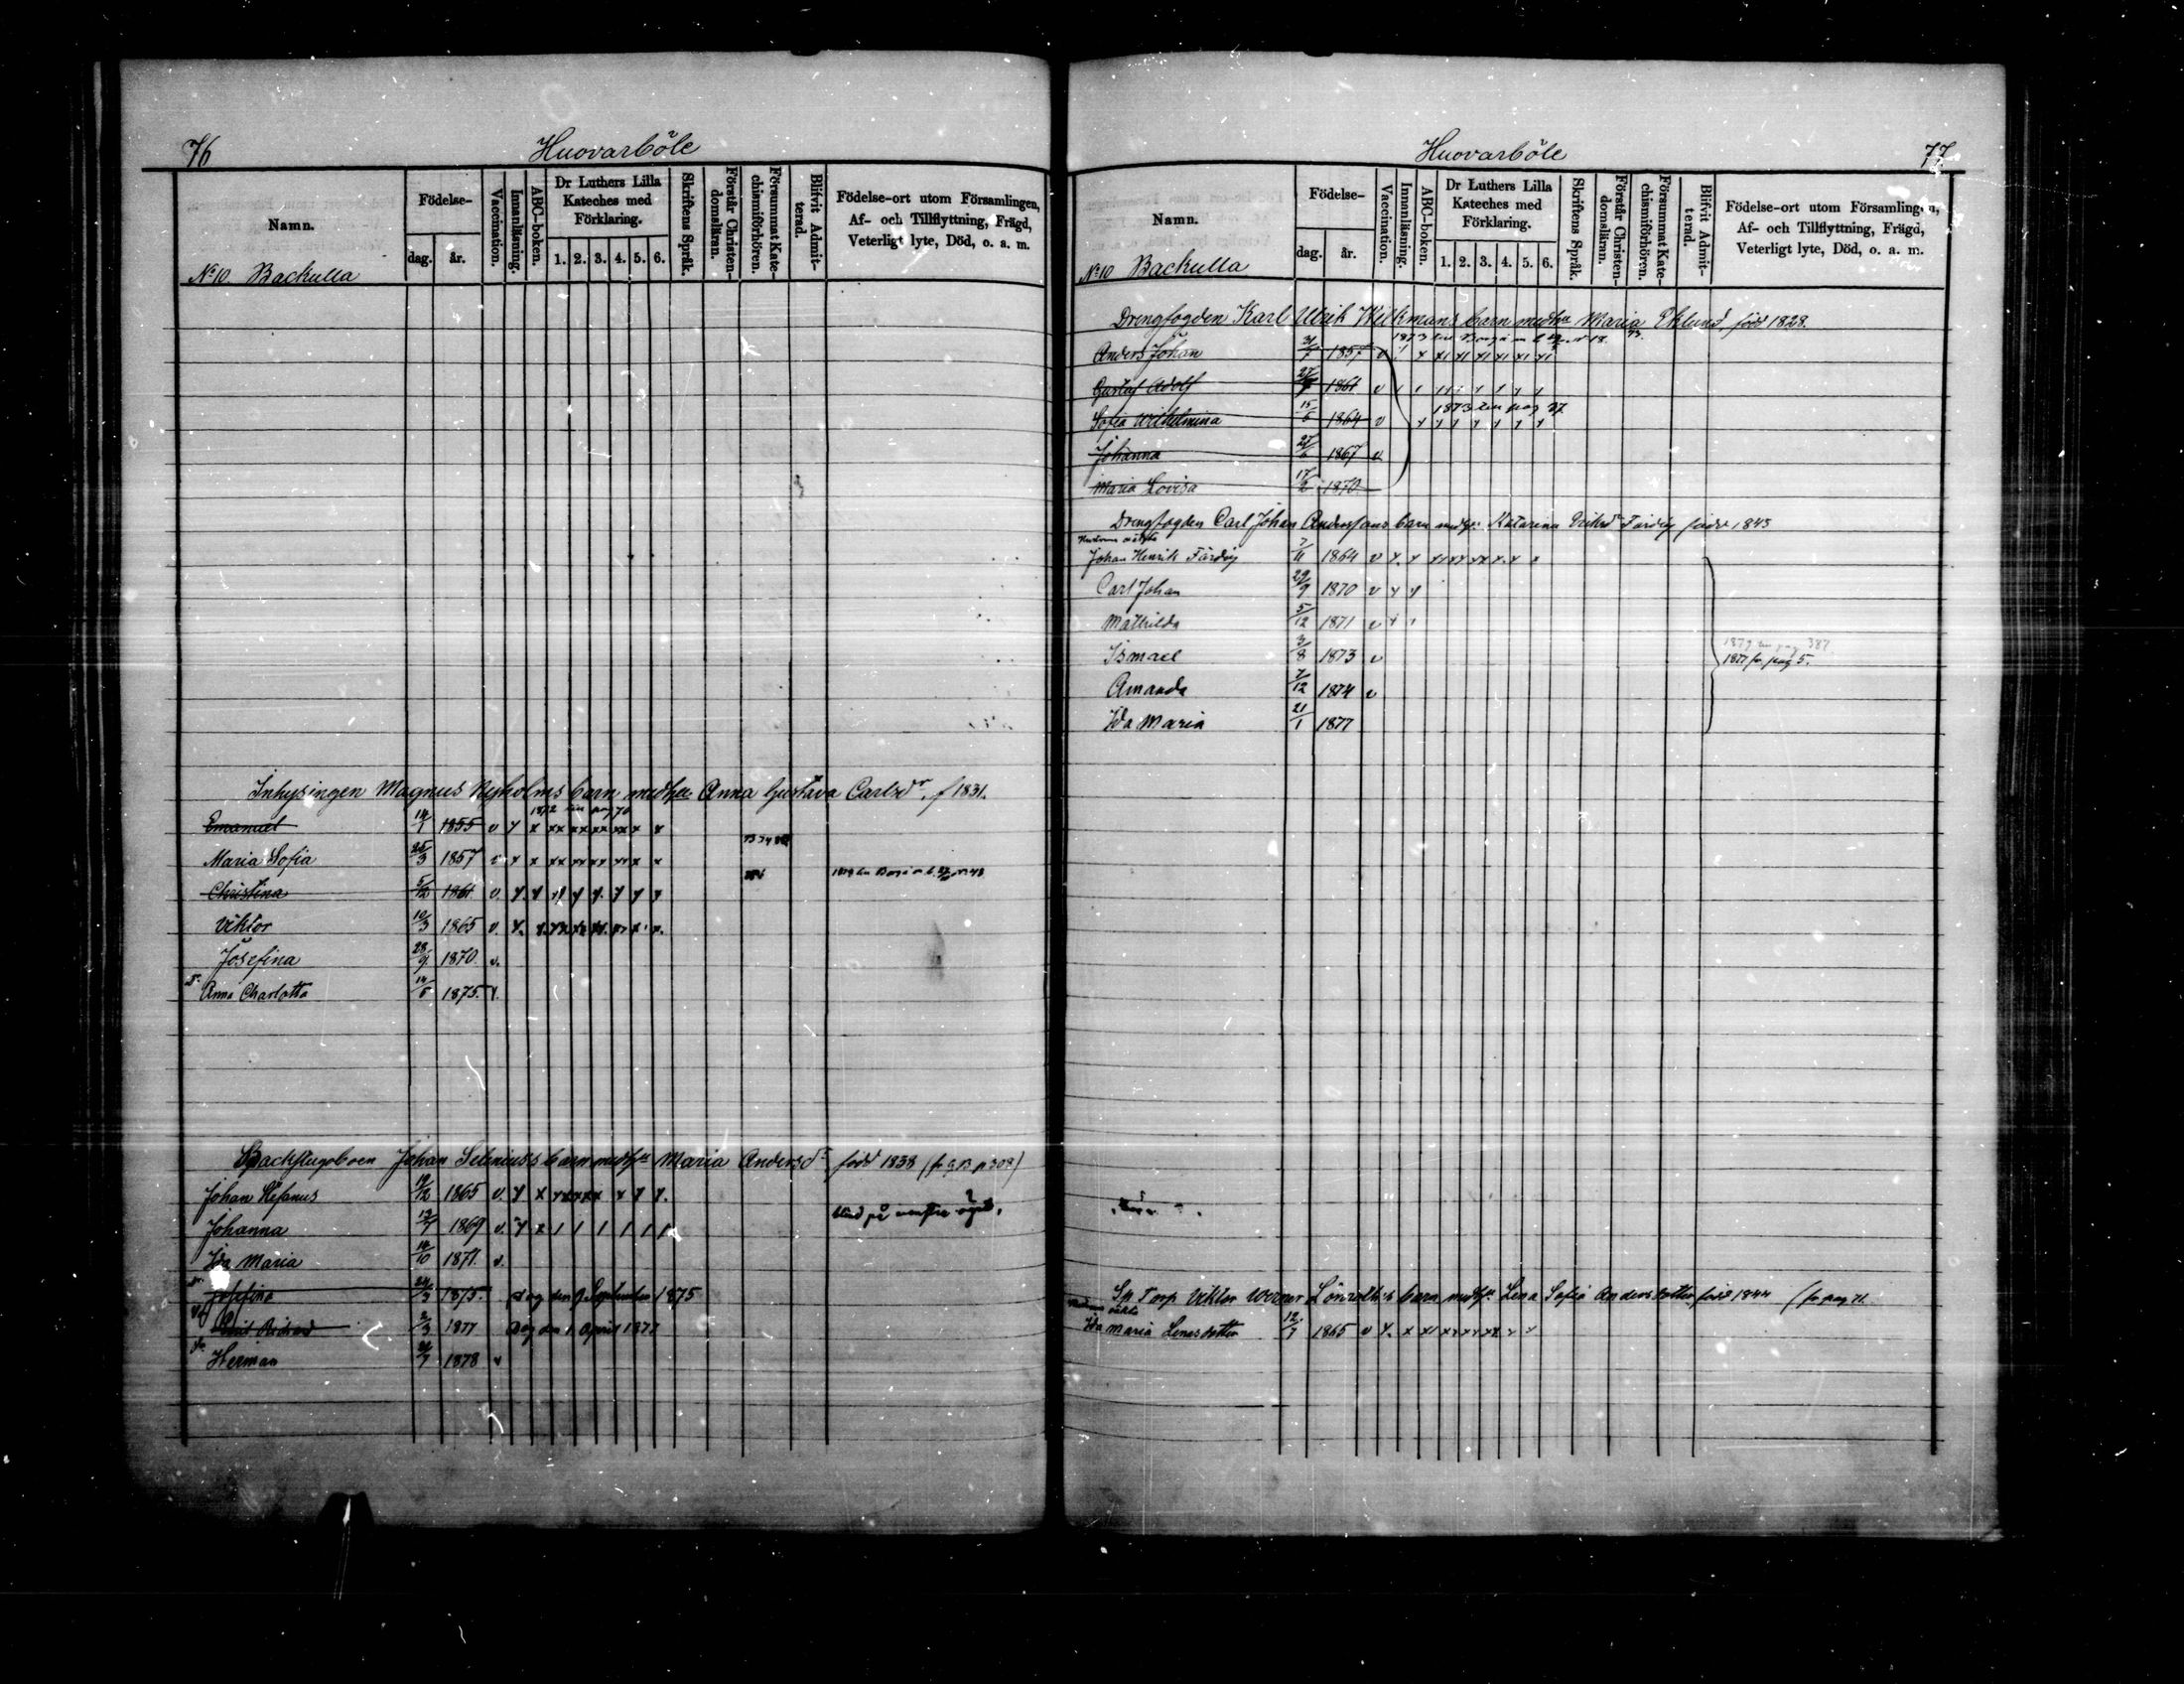 76
Huovarböle
Namn.
Födelse-
dag.
år.
Vaccination.
Innanläsning.
ABC-boken.
Dr Luthers Lilla
Kateches med
Förklaring.
1. 2. 3. 4. 5. 6.
Skriftens Språk.
Förstår Christen-
domsläran.
Försummat Kate-
chismiförhören.
Blifvit Admit-
terad.
Födelse-ort utom Församlingen,
Af- och Tillflyttning, Frägd,
Veterligt lyte, Död, o. a. m.
No 10. Backulla
Inhysingen Magnus Nyholms barn med hu Anna Gustava Carlsdr, f 1831.
1872 pag 70
Emanuel 14/1 1855 v
Maria Sofia 25/3 1857 v
Christina 5/12 1861 v.
Viktor 10/3 1865 v.
Josefina 28/9 1870 v.
Anna Charlotta 1875.
Backstugoboen Johan Selenius's barn med hu Maria Andersdr född 1838
Johan Stefanus 19/12 1865 v.
Johanna 1869 v. blind på
Ida Maria 14/10 1871. v.
Josefina 24/3 1875. dog den 9 September 1875
2/3 1877 dog den 1 April 1877
Herman 1878 v
Huovarböle
77
Namn.
Födelse-
dag.
år.
Vaccination.
Innanläsning.
ABC-boken.
Dr Luthers Lilla
Kateches med
Förklaring.
1. 2. 3. 4. 5. 6.
Skriftens Språk.
Förstår Christen-
domsläran.
Försummat Kate-
chismiförhören.
Blifvit Admit-
terad.
Födelse-ort utom Församlingen,
Af- och Tillflyttning, Frägd,
Veterligt lyte, Död, o. a. m.
No 10 Backulla
Drengfogden Karl Ulrik Wilkmans barn med hu Maria Eklund, född 1828.
Anders Johan 31/7 1857 v
Gustaf Adolf 1861 v
1873 pag 27
Sofia Wilhelmina 15/6 1864 v
Johanna 1867 v
Maria Lovisa 17/2 1870
Drengfogden Carl Johan Anderssons barn med hu Katarina Färdig född 1845
Johan Henrik Färdig 7/11 1864 v
Carl Johan 29/9 1870 v
Mathilda 5/12 1871 v
Ismael 3/8 1873 v
1879 pag 387
1877 fr. pag 5.
Amanda 7/12 1874 v
Ida Maria 21/1 1877
Sp Torp Viktor Werner barn med hu Lena Sofia Andersdotter född 1844 (fr pag 71.
Ida Maria Lenasdotter 1865 v